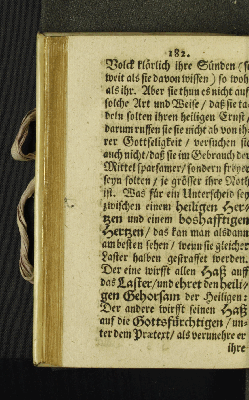 182.
Volck klörlich ihre Sünden (so
weit als sie davon wissen) so wohl
als ihr. Aber sie thun es nicht auf
solche Art und Weise / daß sie ta-
deln solten ihren heiligen Ernst /
darum ruffen sie sie nicht ab von ih-
rer Gottseligkeit / versuchen sie
auch nicht / daß sie im Gebrauch der
Mittel sparsamer / sondern freyer
seyn solten / je grösser ihre Noth
ist. Was für ein Unterscheid sey
zwischen einem heiligen Her-
tzen und einem boshafftigen
Hertzen / das kan man alsdann
am besten sehen / wenn sie gleicher
Laster halben gestraffet werden.
Der eine wirfft allen Haß auff
das Laster / und ehret den heili-
gen Gehorsam der Heiligen:
Der andere wirfft seinen Haß
auf die Gottsfürchtigen / un-
ter dem Prætext / als verunehre er
ihre